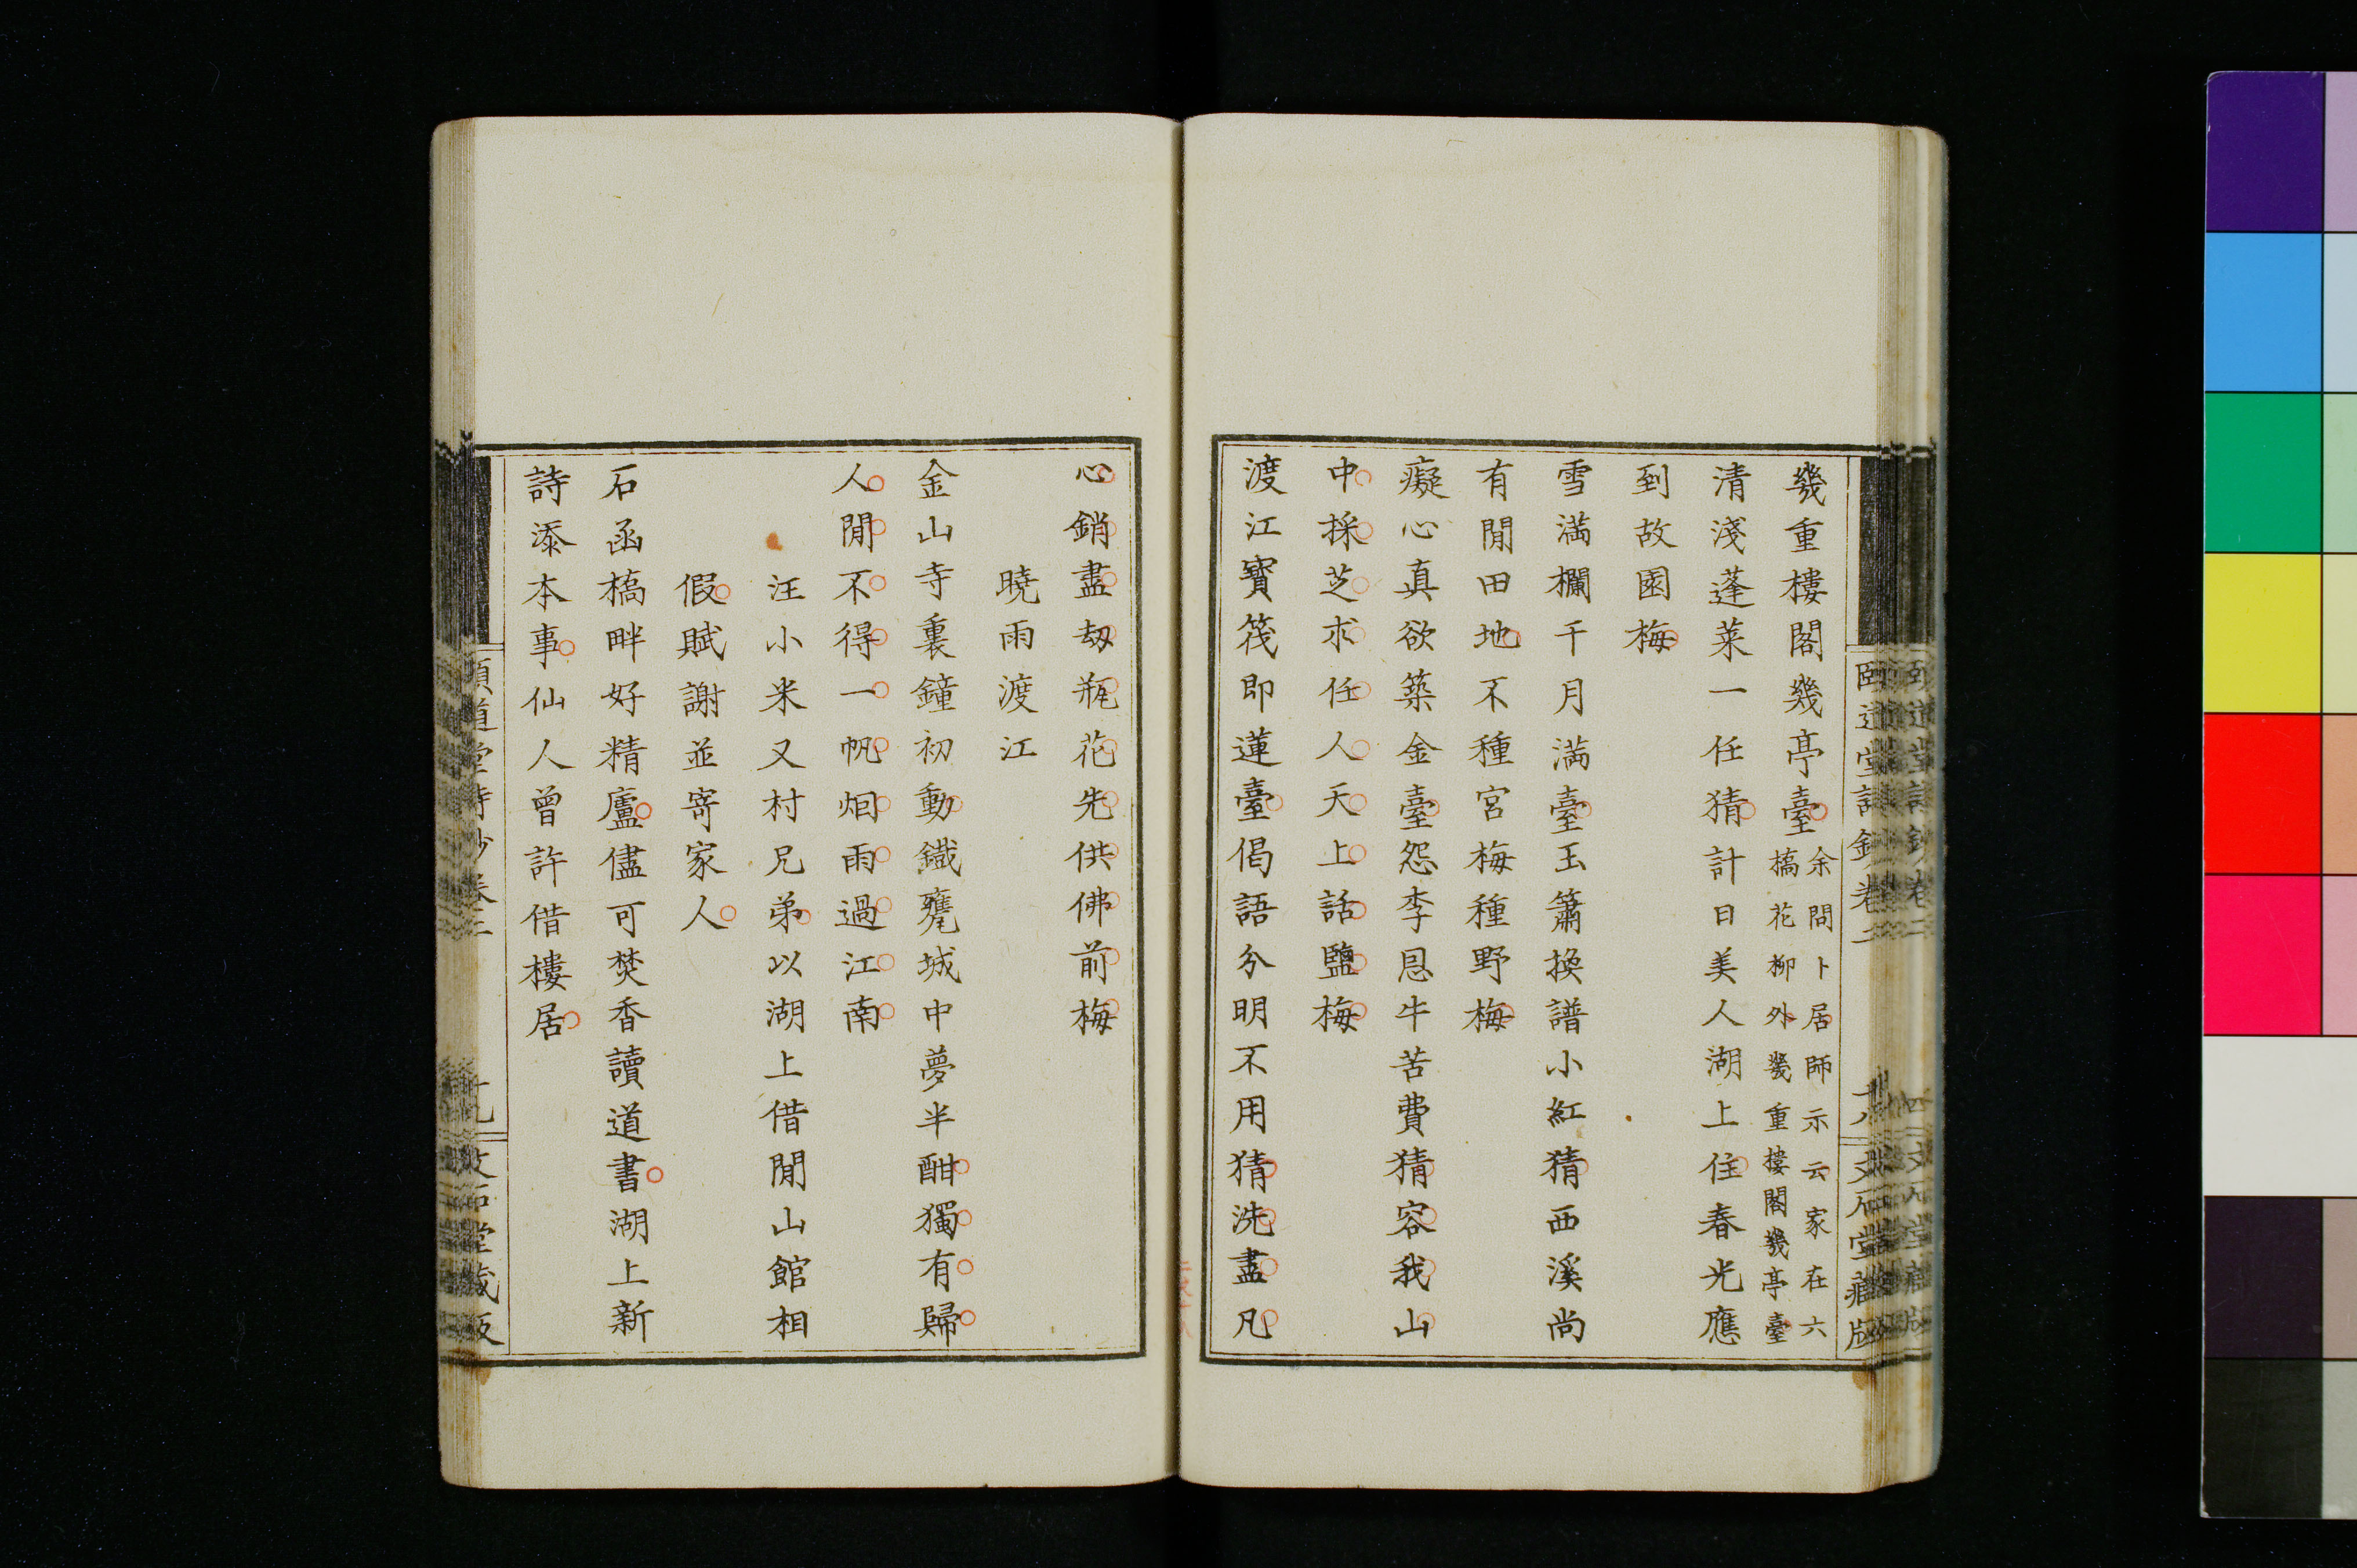 幾重樓閣幾亭臺余問卜居師示云家在六
橋花柳外幾重樓閣幾亭臺
清淺蓬萊一任猜計日美人湖上住春光應
到故園梅
雪滿欄干月滿臺玉簫換譜小紅猜西溪尚
有閒田地不種宮梅種野梅
癡心真欲築金臺怨李恩牛苦費猜容我山
中採芝求任人天上話鹽梅
渡江寶筏即蓮臺偈語分明不用猜洗盡凡
心銷盡劫瓶花先供佛前梅
曉雨渡江
金山寺裏鐘初動鐵甕城中夢半酣獨有歸
人閒不得一帆烟雨過江南
汪小米又村兄弟以湖上借閒山館相
假賦謝並寄家人
石函橋畔好精廬儘可焚香讀道書湖上新
詩添本事仙人曾許借樓居
頤道堂詩鈔卷二
十八
文石堂藏版